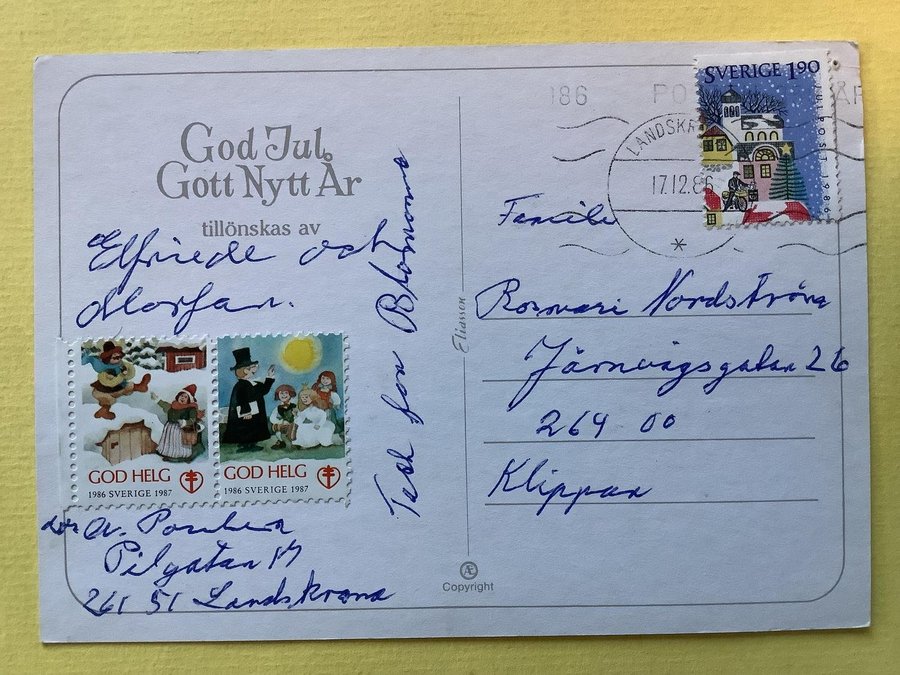 God Jul
Gott Nytt År
tillönskas av
Elfriede och
Morfar.
Tack för Blommorna
GOD HELG
1986 SVERIGE 1987
GOD HELG
1986 SVERIGE 1987
A.
Pilgatan
261 51 Landskrona
Eliasson
Æ
Copyright
186 PO
LANDSKR
17.12.86
*
SVERIGE 1.90
JULPOST 1986
Familj
Rosmari Nordström
Järnvägsgatan 26
264 00
Klippan